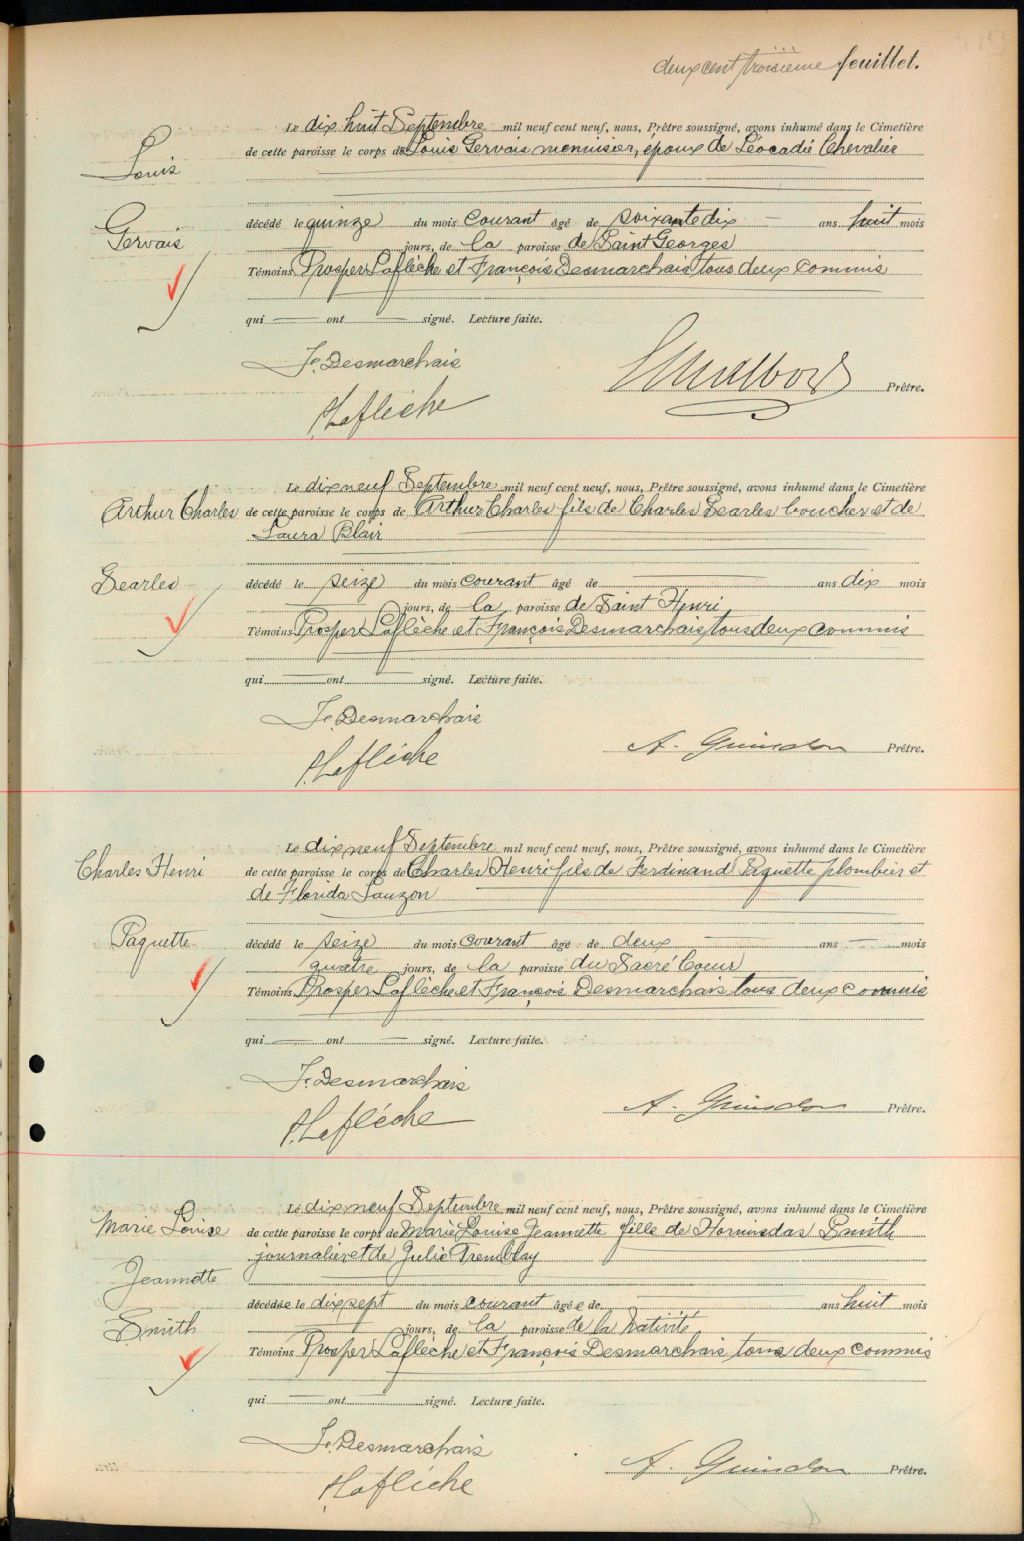 deux cent troisième feuillet.
Louis
Gervais
Le dix huit Septembre mil neuf cent neuf, nous, Prêtre soussigné, avons inhumé dans le Cimetière
de cette paroisse le corps de Louis Gervais menuisier, époux de Léocadie Chevalier
décédé le quinze du mois courant âgé de soixante dix ans huit mois
jours, de la paroisse de Saint Georges
Témoins Prosper Laflèche et François Desmarchais, tous deux commis
qui ont signé. Lecture faite.
F. Desmarchais
P. Laflèche
Prêtre.
Arthur Charles
Searles
Le dix neuf Septembre mil neuf cent neuf, nous, Prêtre soussigné, avons inhumé dans le Cimetière
de cette paroisse le corps de Arthur Charles fils de Charles Searles boucher et de
Laura Blair
décédé le seize du mois courant âgé de ans dix mois
jours, de la paroisse de Saint Henri
Témoins Prosper Laflèche et François Desmarchais, tous deux commis
qui ont signé. Lecture faite.
F. Desmarchais
P. Laflèche
A. Guindon Prêtre.
Charles Henri
Paquette
Le dix neuf Septembre mil neuf cent neuf, nous, Prêtre soussigné, avons inhumé dans le Cimetière
de cette paroisse le corps de Charles Henri fils de Ferdinand Paquette plombier et
de Florida Lauzon
décédé le seize du mois courant âgé de deux ans mois
quatre jours, de la paroisse du Sacré Coeur
Témoins Prosper Laflèche et François Desmarchais tous deux commis
qui ont signé. Lecture faite.
F. Desmarchais
P. Laflèche
A. Guindon Prêtre.
Marie Louise
Jeannette
Smith
Le dix neuf Septembre mil neuf cent neuf, nous, Prêtre soussigné, avons inhumé dans le Cimetière
de cette paroisse le corps de Marie Louise Jeannette fille de Hormisdas Smith
journalier et de Julie Tremblay
décédée le dix sept du mois courant âgée de ans huit mois
jours, de la paroisse de la Nativité
Témoins Prosper Laflèche et François Desmarchais tous deux commis
qui ont signé. Lecture faite.
F. Desmarchais
P. Laflèche
A. Guindon Prêtre.